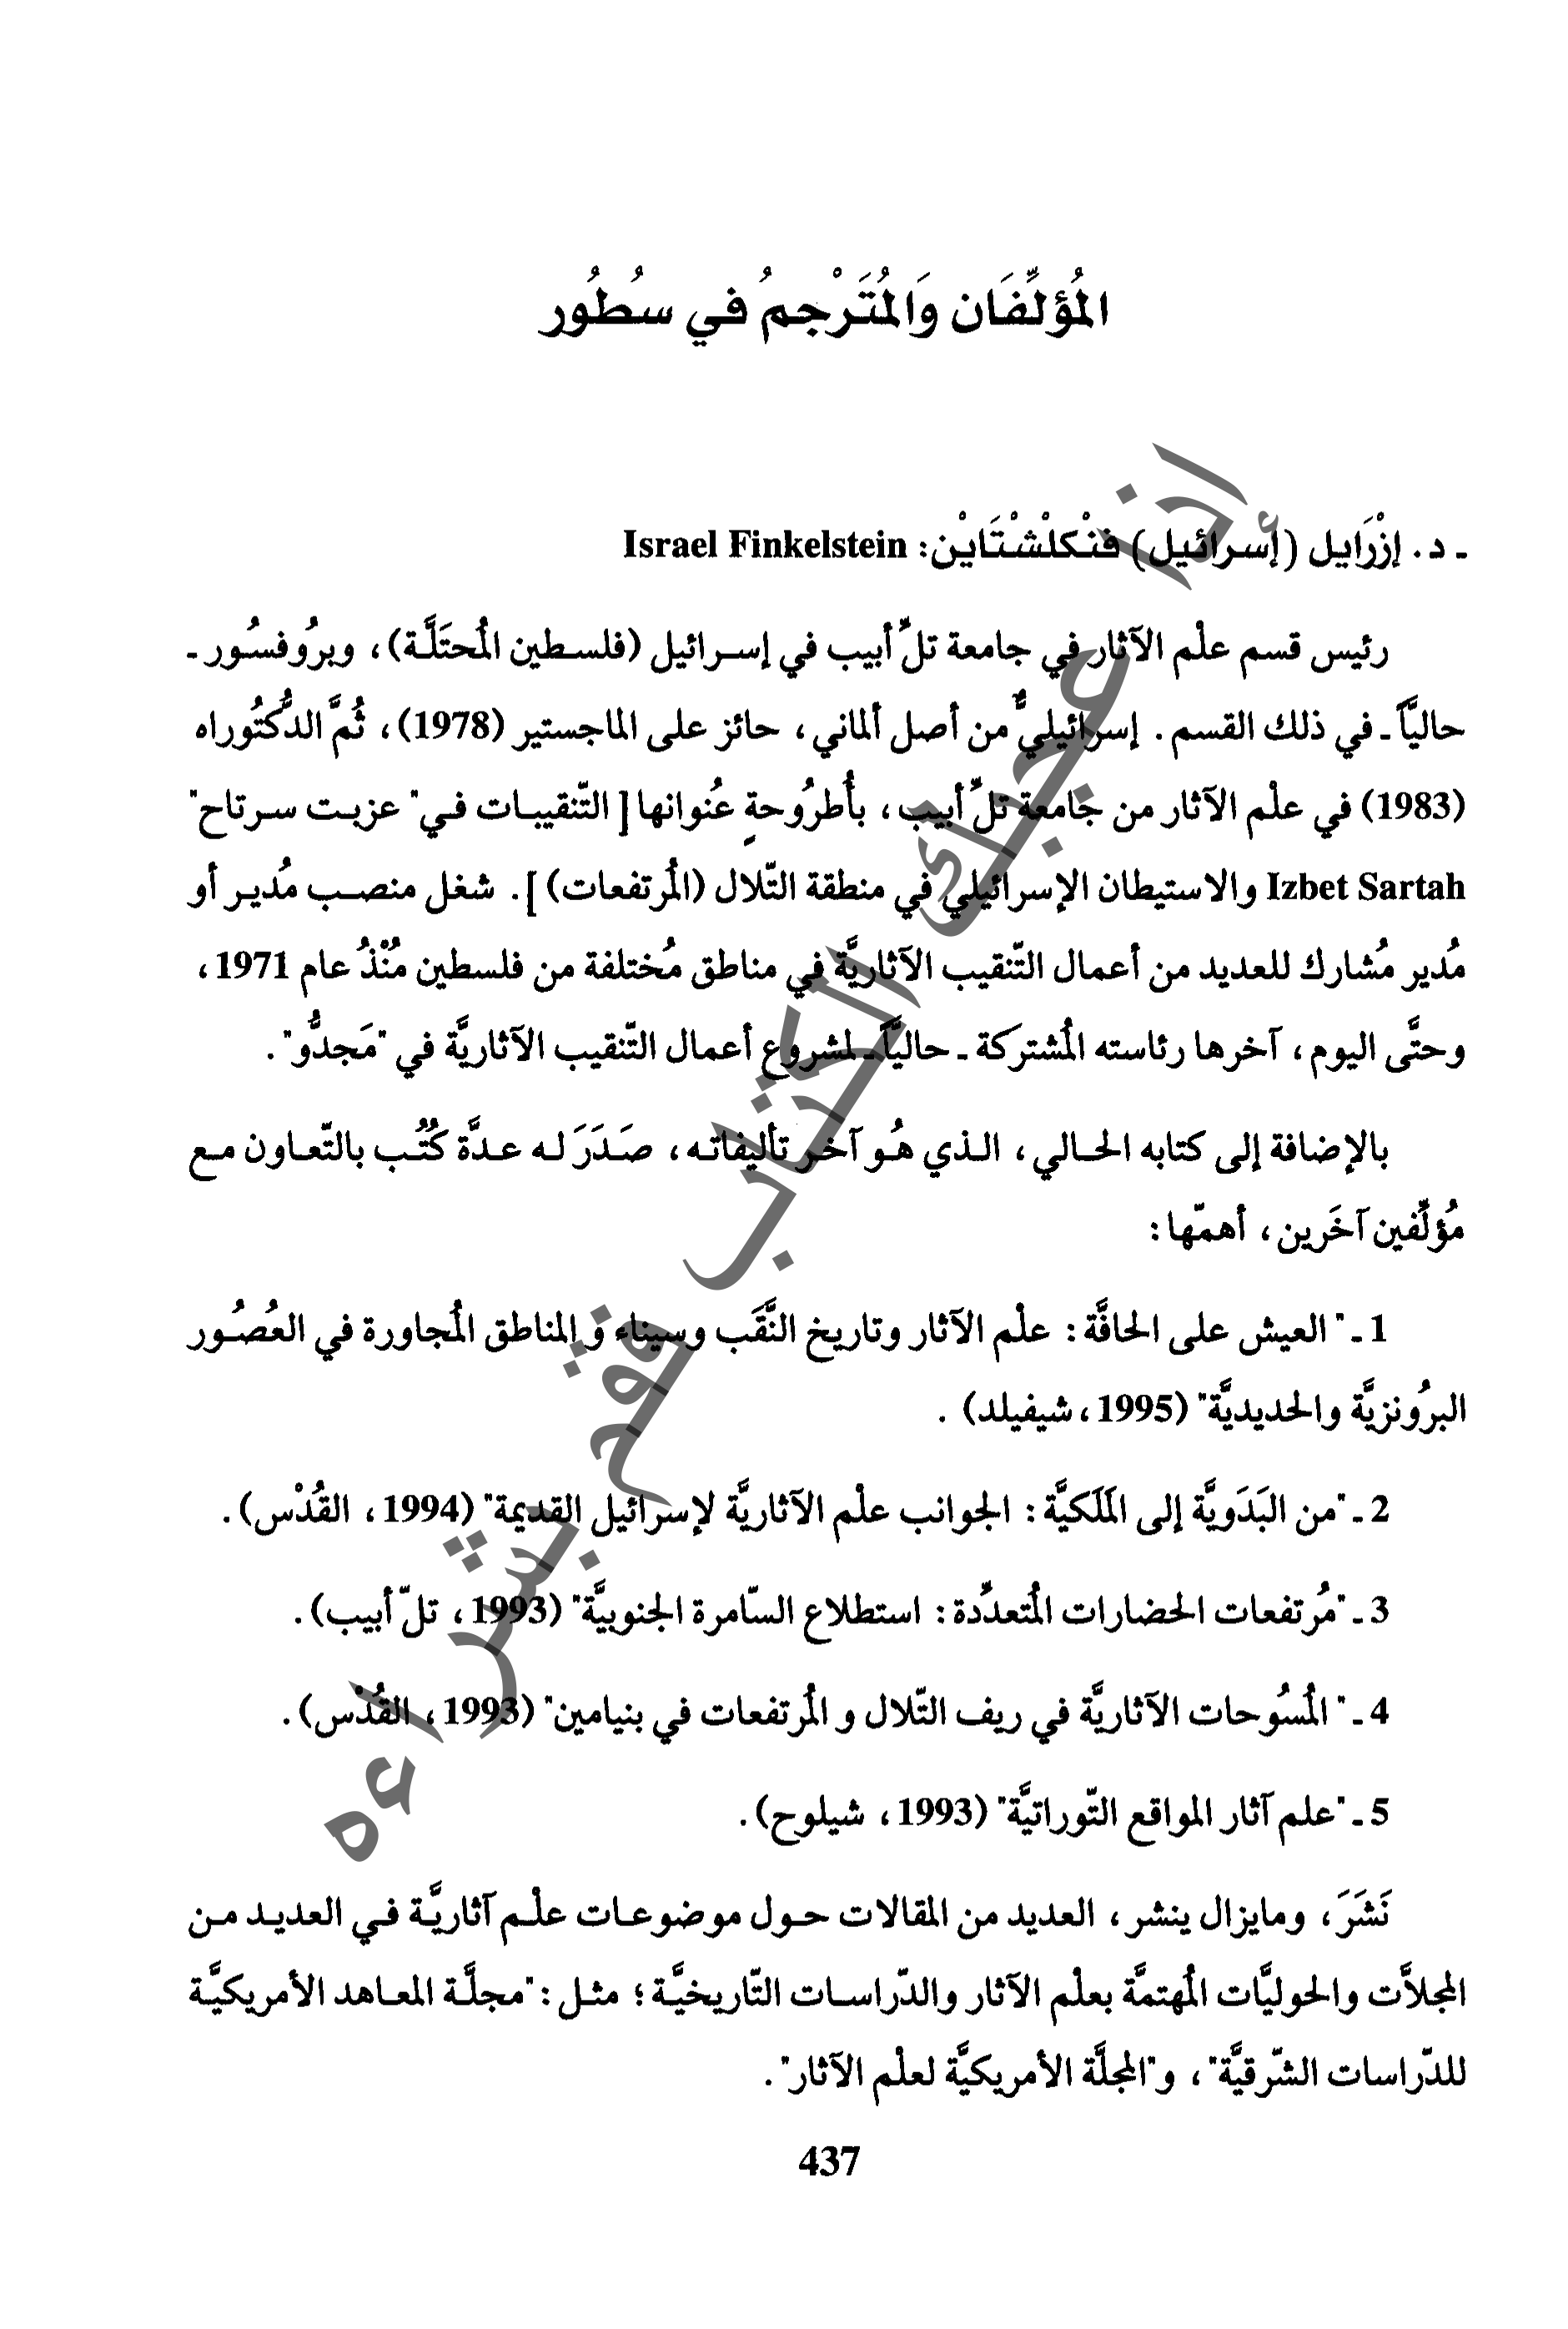 المُؤلِّفَان وَالمُتَرْجِمُ في سُطُور
ـ د. إزْرَايل (إسرائيل) فنْكلْشْتَايْن: Israel Finkelstein
رئيس قسم علْم الآثار في جامعة تلِّ أبيب في إسرائيل (فلسطين المُحتَلَّة)، وبرُوفسُور ـ
حاليَّاً ـ في ذلك القسم. إسرائيليٌّ من أصل ألماني، حائز على الماجستير (1978)، ثُمَّ الدُّكتُوراه
(1983) في علْم الآثار من جامعة تلِّ أبيب، بأُطرُوحةٍ عُنوانها [التّنقيبات في" عزبت سرتاح"
Izbet Sartah والاستيطان الإسرائيلي في منطقة التّلال (المُرتفعات)]. شغل منصب مُدير أو
مُدير مُشارك للعديد من أعمال التّنقيب الآثاريَّة في مناطق مُختلفة من فلسطين مُنْذُ عام 1971،
وحتَّى اليوم، آخرها رئاسته المُشتركة ـ حاليَّاً ـ لمشروع أعمال التّنقيب الآثاريَّة في "مَجدُّو".
بالإضافة إلى كتابه الحالي، الذي هُو آخر تأليفاته، صَدَرَ له عدَّة كُتُب بالتّعاون مع
مُؤلِّفين آخَرين، أهمّها:
1 ـ " العيش على الحافَّة: علْم الآثار وتاريخ النَّقَب وسيناء و المناطق المُجاورة في العُصُور
البرُونزيَّة والحديديَّة" (1995، شيفيلد) .
2 ـ "من البَدَويَّة إلى المَلَكيَّة: الجوانب علْم الآثاريَّة لإسرائيل القديمة" (1994، القُدْس).
3 ـ "مُرتفعات الحضارات المُتعدِّدة: استطلاع السّامرة الجنوبيَّة" (1993، تلّ أبيب).
4 ـ " المُسُوحات الآثاريَّة في ريف التّلال و المُرتفعات في بنيامين" (1993، القُدْس).
5 ـ "علم آثار المواقع التّوراتيَّة" (1993، شيلوح).
نَشَرَ، ومايزال ينشر، العديد من المقالات حول موضوعات علْم آثاريَّة في العديد من
المجلاَّت والحوليَّات المُهتمَّة بعلْم الآثار والدّراسات التّاريخيَّة؛ مثل: "مجلَّة المعاهد الأمريكيَّة
للدّراسات الشّرقيَّة"، و"المجلَّة الأمريكيَّة لعلْم الآثار".
437
إذا عجبك الكتاب قم بشراءه